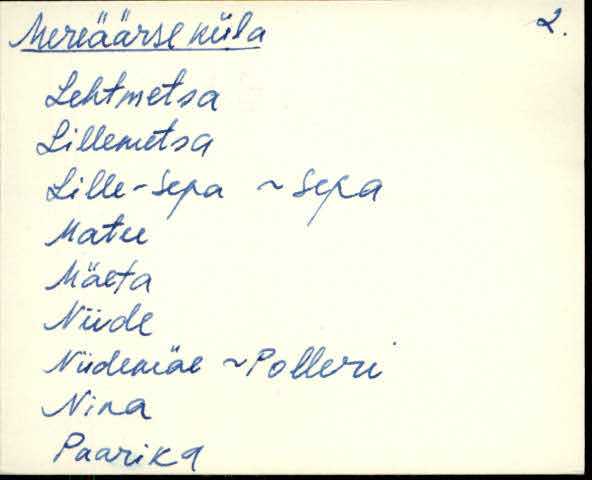 Mereäärse küla 2.
Lehtmetsa
Lillemetsa
Lille-Sepa ~ Sepa
Matu
Mäeta
Niide
Niidemäe ~ Polleri
Nina
Paarika